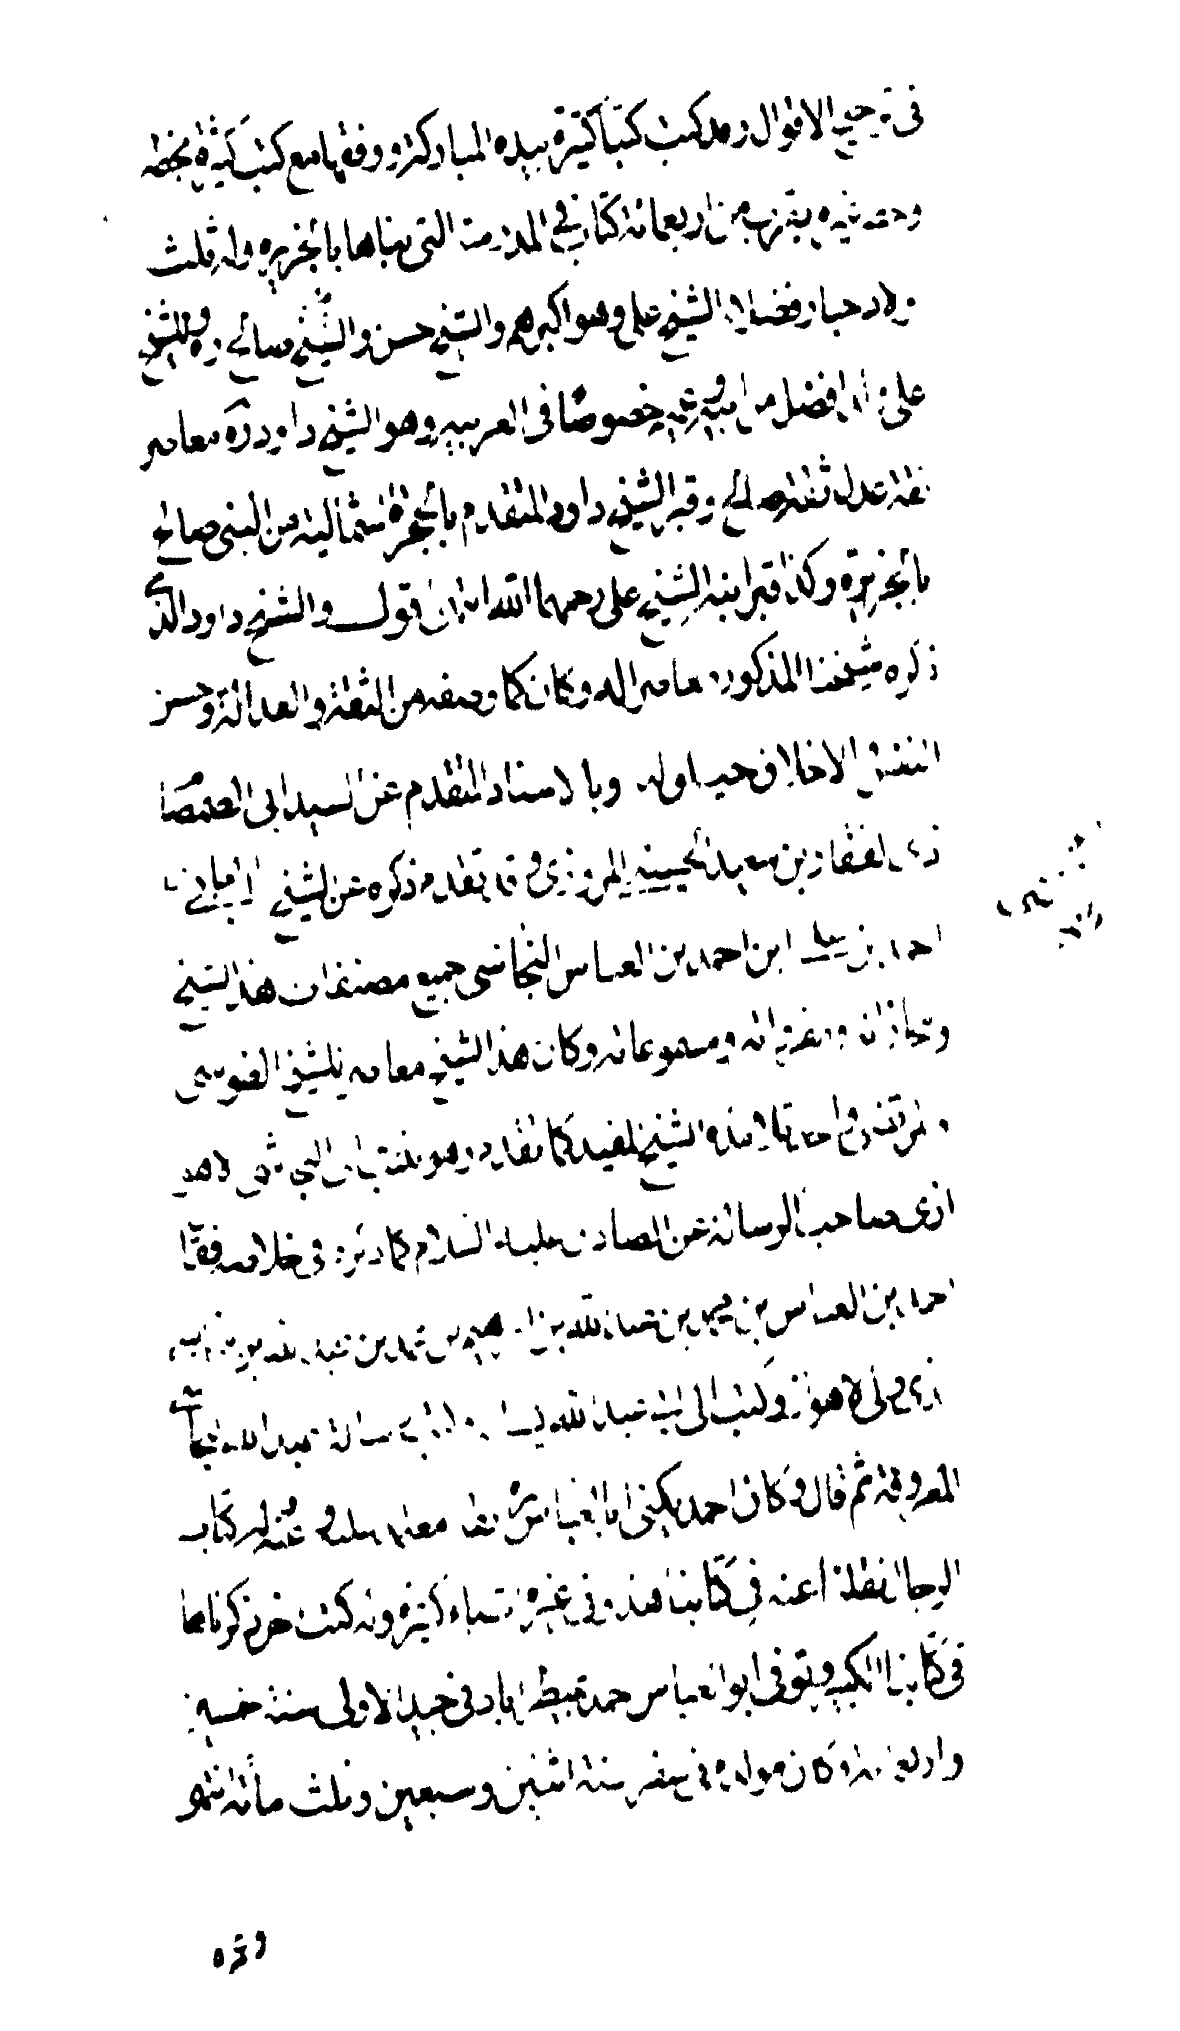 في توجيه الاقوال وقد كتب كتبا كثيرة بيده المباركة ووقفها مع كتب كثيرة بخطه
يقرب من اربعمائة كتاب في المدرسة التي بناها بالجزيره وله ثلث
اولاد فضلاء الشيخ علي وهو اكبرهم والشيخ حسن والشيخ صالح ره والشيخ
علي افضل من ابيه خصوصا في العربيه وهو الشيخ داود ره معاصر
ثقة عدل ثقة صالح وقبر الشيخ داود المتقدم بالحجرة الشمالية من النبي صالح
بالجزيرة وكذا قبر ابنه الشيخ علي رحمهما الله اقول والشيخ داود الذي
ذكره شيخنا المذكور معاصرا له وكان كما وصفه من الثقة والعدالة وحسن
الاخلاق وبالاسناد المتقدم عن السيد ابي الصمصام
ذي الفقار بن سعيد الحسيني المروزي وقد تقدم ذكره عن الشيخ
احمد بن علي ابن احمد بن العباس النجاشي جميع مصنفات هذا الشيخ
ومجازاته ومقرواته ومسموعاته وكان هذا الشيخ معاصر للشيخ الطوسي
والمرتضى واحد تلامذة الشيخ المفيد كما تقدم وهو ينسب الى النجاشي الاهو
ازي صاحب الرسالة عن الصادق عليه السلام كما ذكره في خلاصه فقال
احمد بن العباس بن محمد بن عبد الله بن ابراهيم بن محمد بن عبد الله بن النجاشي
الذي ولي الاهواز وكتب الى ابي عبد الله يساله رسالة عبد الله النجاشي
المعروفة ثم قال وكان احمد يكنى ابا العباس ره ثقة معتمد عليه له كتاب
الرجال نقلنا عنه في كتابنا هذا وفي غيره اشياء كثيرة وله كتب اخر ذكرناها
في كتابنا الكبير وتوفي ابو العباس احمد بمطيراباد في جمادى الاولى سنة خمسين
واربعمائة وكان مولده في صفر سنة اثنين وسبعين وثلث مائة انتهى